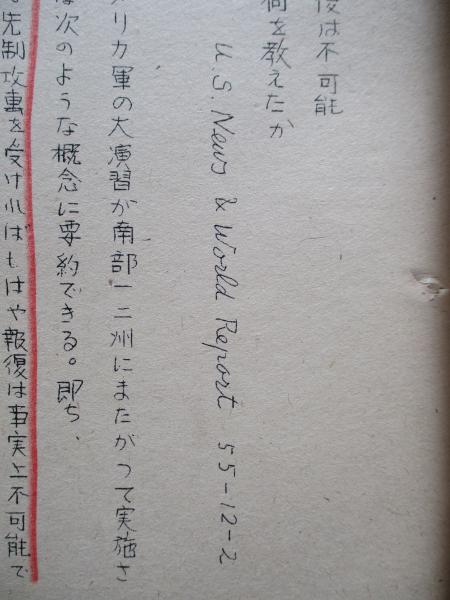 後は不可能
何を教えたか
U.S. News & World Report 55-12-2
メリカ軍の大演習が南部一二州にまたがって実施さ
は次のような概念に要約できる。即ち、
。先制攻撃を受ければもはや報復は事実上不可能で